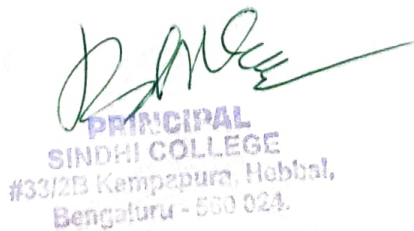 PRINCIPAL
SINDHI COLLEGE
#33/2B Kempapura, Hebbal,
Bengaluru - 560 024.